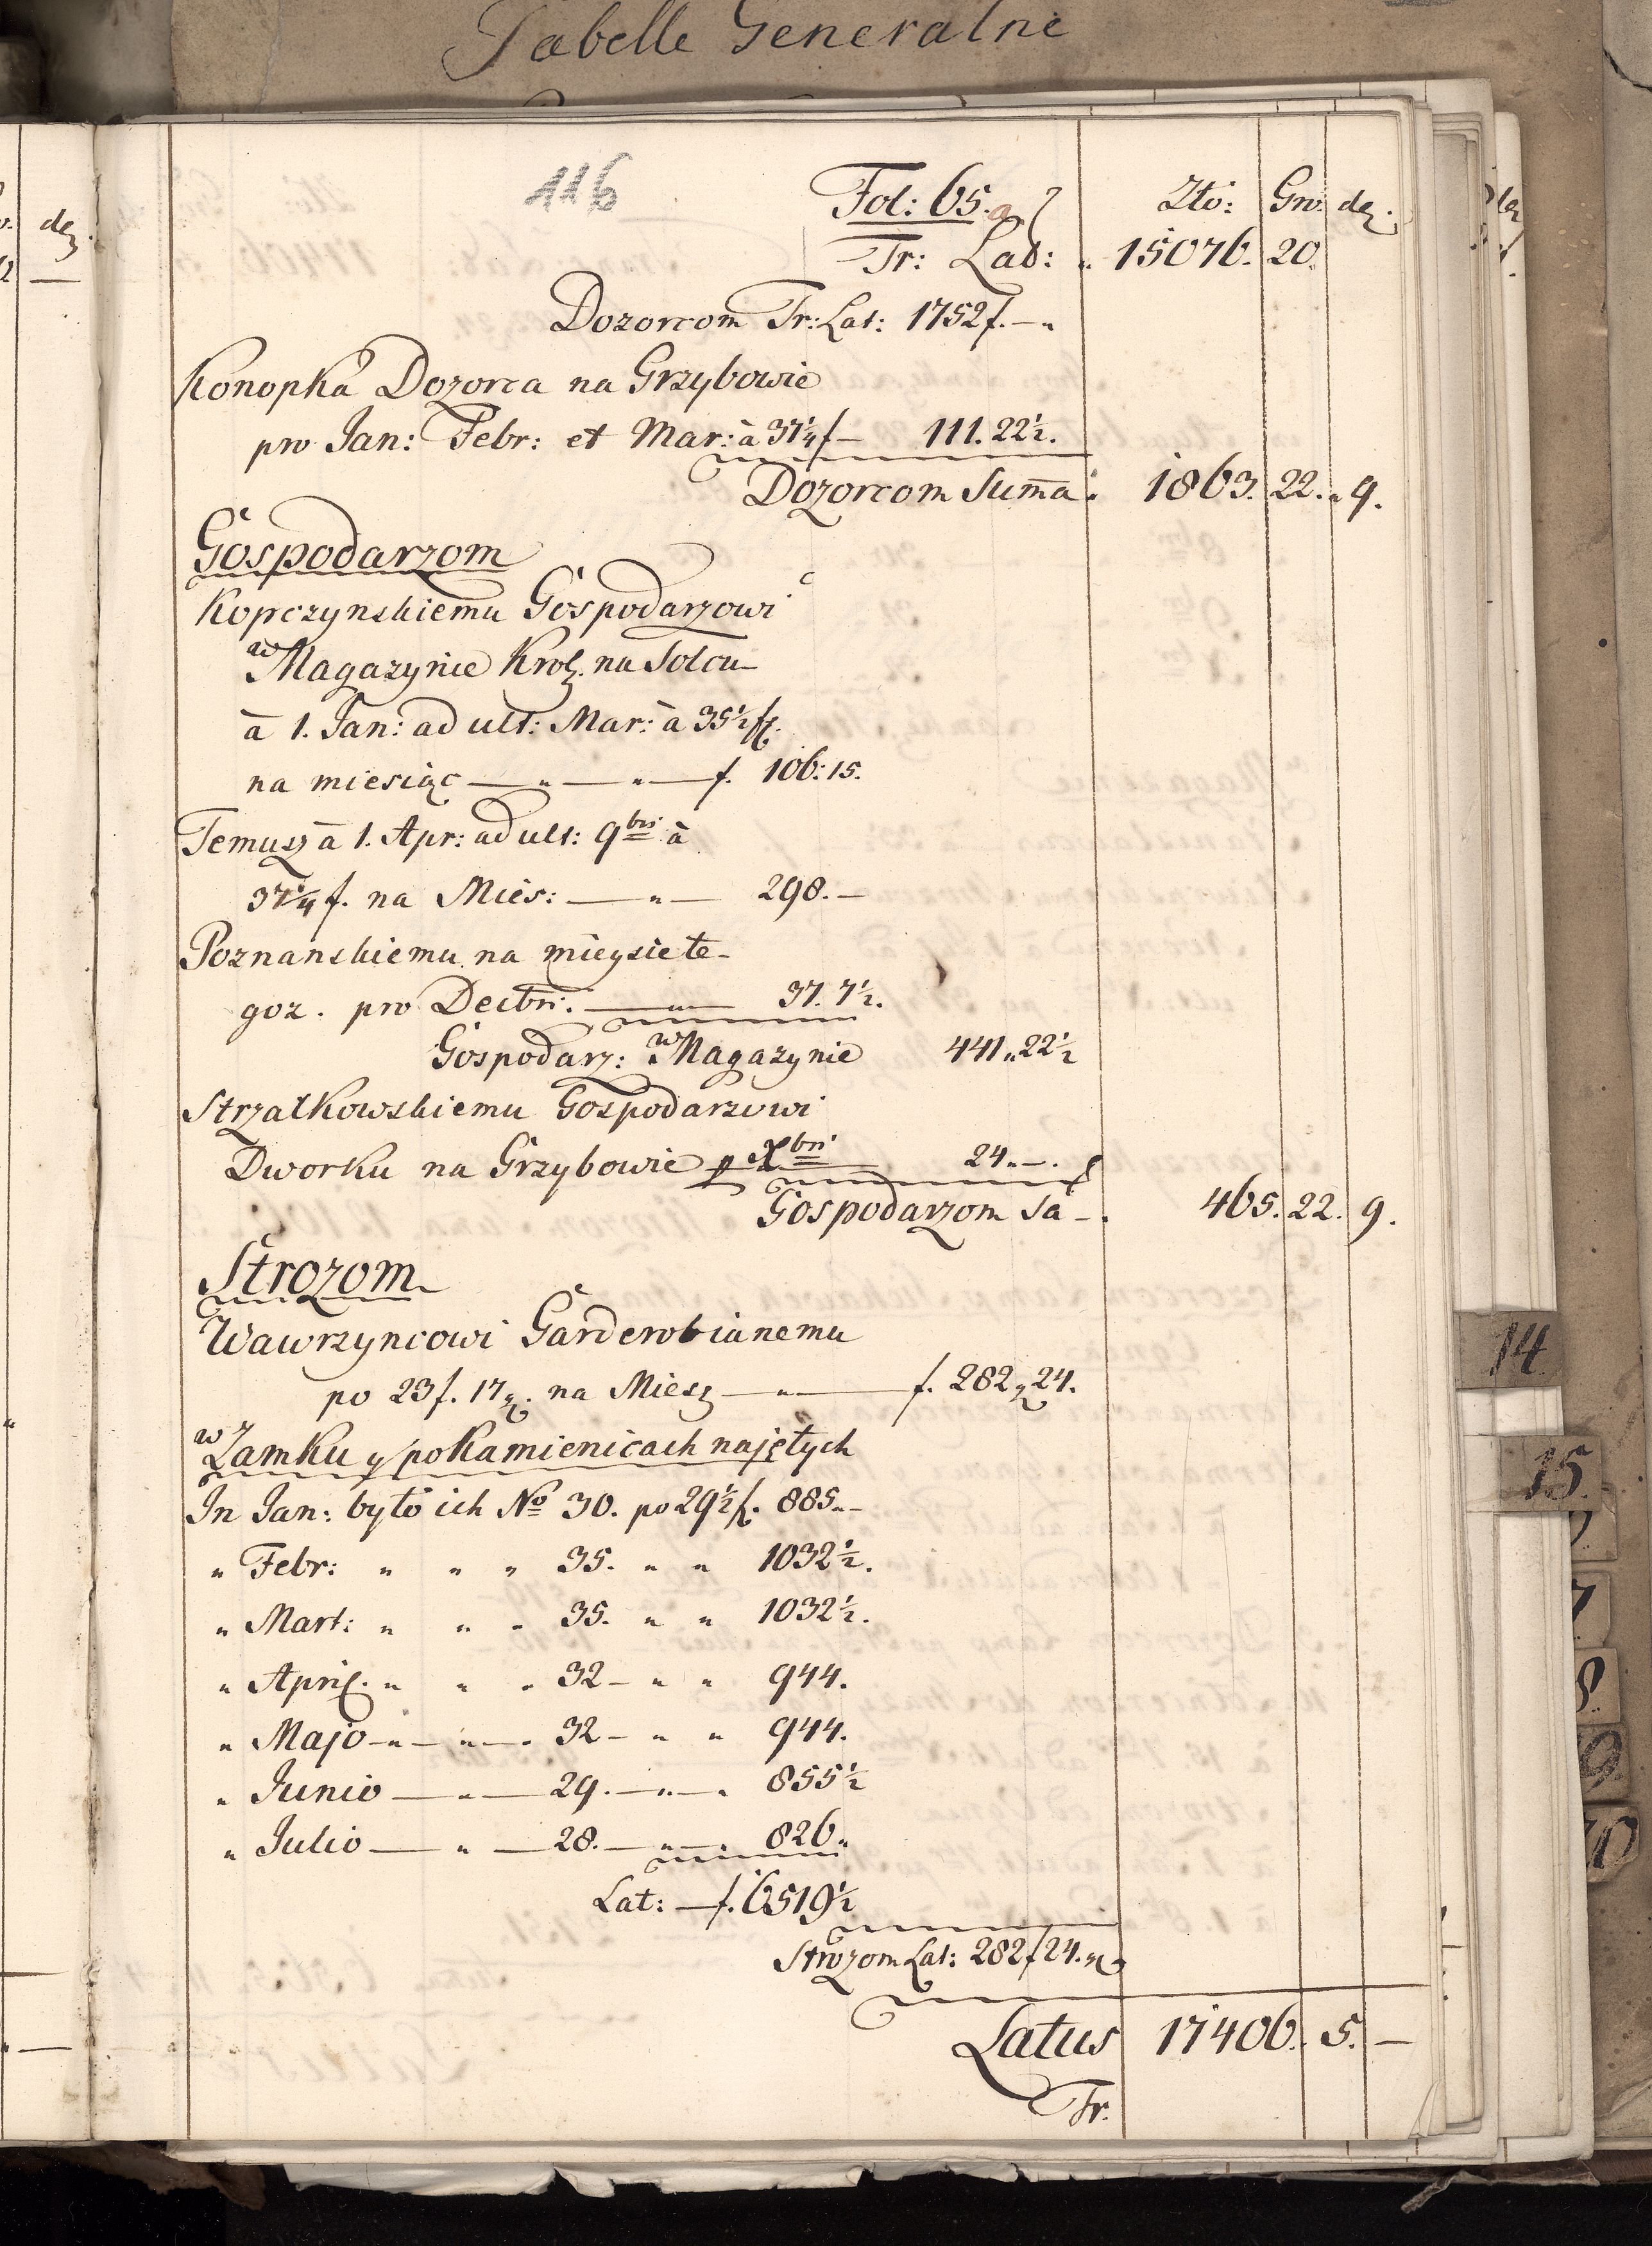 Tabelle Generalne
116
Fol: 65. a
Zło: Gro: dez.
Tr: Lat: „ 15076. 20.
Dozorcom Tr: Lat: 1752 f. — „
Konopka Dozorca na Grzybowie
pro Jan: Febr: et Mar: à 37 1/4 f — 111. 22 1/2.
Dozorcom Sum̄a: 1863. 22. „ 9.
Gospodarzom
Kopczynskiemu Gospodarzowi
w Magazynie Krol. na Solcu
à 1. Jan: ad ult: Mar: à 35 1/2 f.
na miesiąc — „ — „ — f. 106: 15.
Temuż à 1. Apr: ad ult: 9bri à
37 1/4 f. na Mies: — „ — 298. —
Poznanskiemu na mieysie te-
goz. pro Decbri: — „ — 37. 7 1/2.
Gospodarz: w Magazynie 441 „ 22 1/2
Strzałkowskiemu Gospodarzowi
Dworku na Grzybowie p Xbri 24 „ —.
Gospodarzom Sa — . 465. 22. 9.
Strozom
Wawrzyncowi Garderobianemu
po 23 f. 17 g. na Miesz — „ — f. 282 „ 24.
w Zamku y po Kamienicach najętych
In Jan: było ich No 30. po 29 1/2 f. 885 „ —
„ Febr: „ „ „ 35. „ „ 1032 1/2.
„ Mart: „ „ „ 35. „ „ 1032 1/2.
„ April. „ „ „ 32 — „ „ 944.
„ Majo — „ — „ — . 32 — „ „ 944.
„ Junio — „ — 29. — „ — . 855 1/2
„ Julio — „ — 28. — „ — . 826 „
Lat: — f. 6519 1/2
Strozom Lat: 282 f 24. g
Latus 17406. 5. —
Tr.
14
15.
7
8.
9.
10